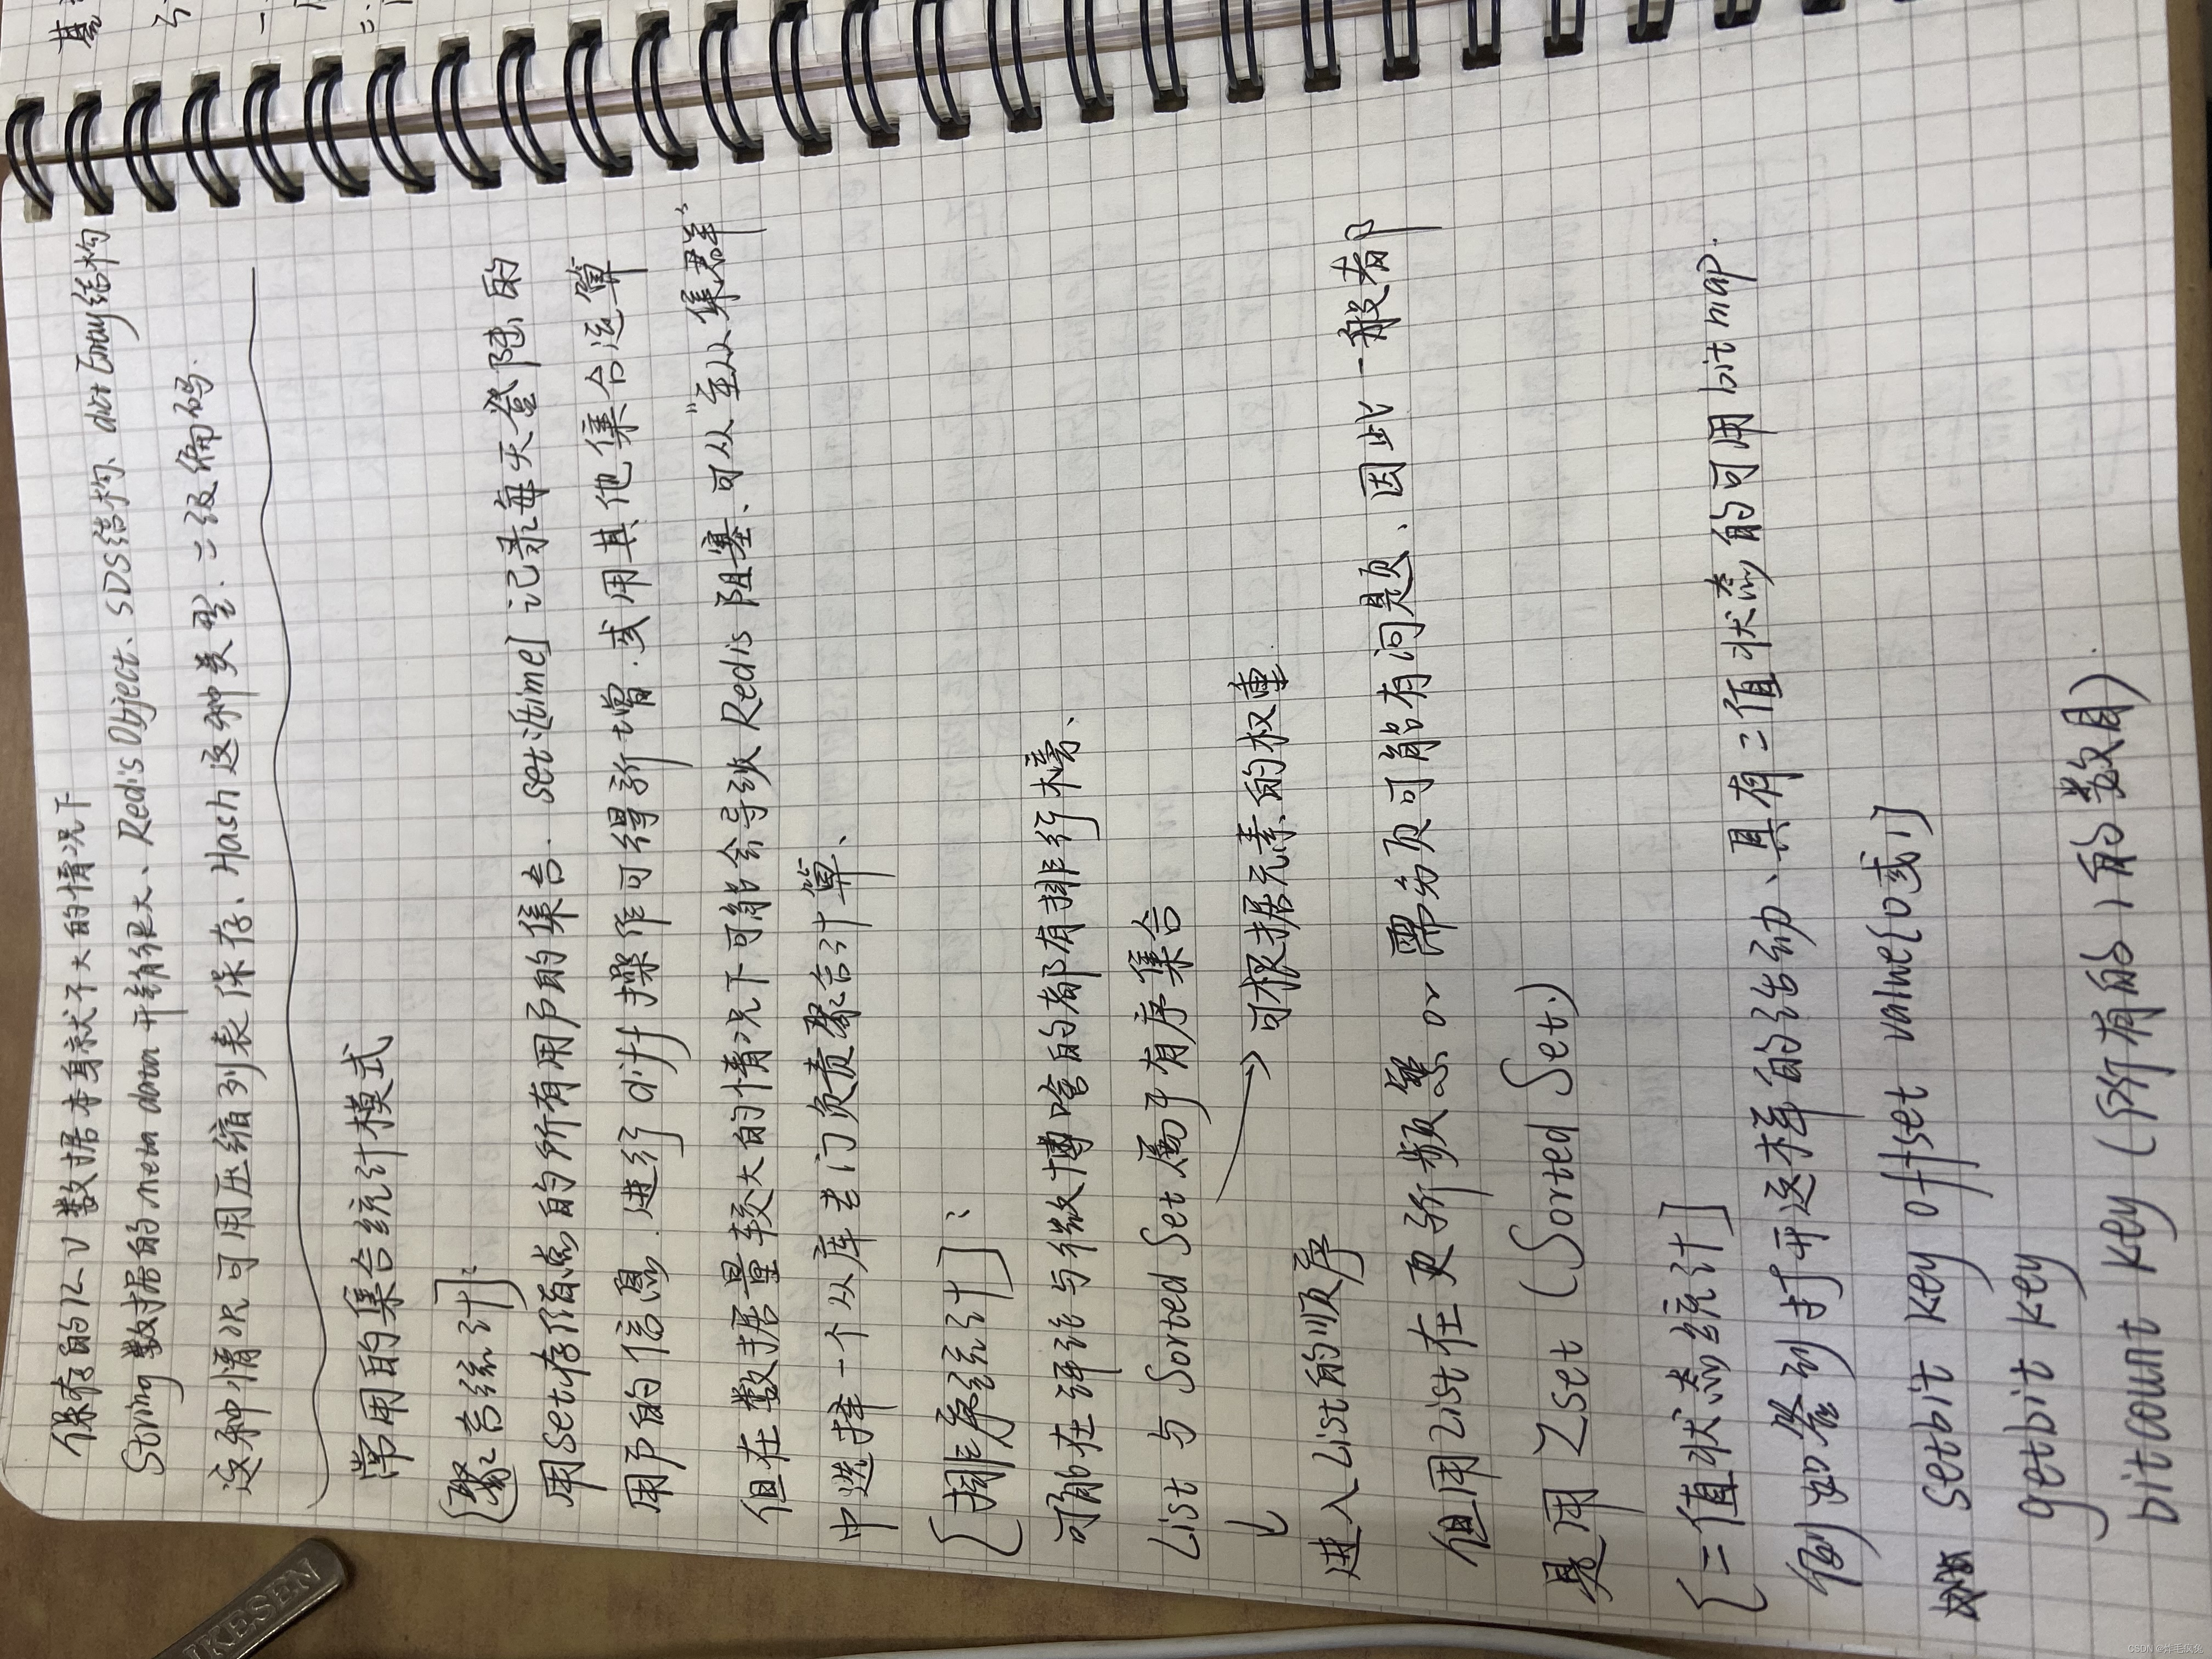 保存的K-V数据本身就不大的情况下
String数据的meta data开销很大、RedisObject、SDS结构、dictEntry结构
这种情况可用压缩列表保存、Hash这种类型.二级编码.
常用的集合统计模式
[聚合统计]:
用Set存储点的所有用户的集合. set:[time] 记录每天登陆的
用户的信息.进行diff操作可得新增.或用其他集合运算
但在数据量较大的情况下可能会导致Redis阻塞、可从"主从集群"
中选择一个从库专门负责聚合计算、
[排序统计]:
可能在评论与微博啥的都有排行榜、
List 与 Sorted Set 属于有序集合
↓ → 可根据元素的权重
进入List的顺序
但用List在更新频繁or需分页可能有问题、因此一般都
是用 Zset (Sorted Set.)
[二值状态统计]
例如签到打开这样的活动、具有二值状态的可用bitmap.
setbit key offset value[0或1]
getbit key
bitcount key (所有的1的数目).
IKESEN
CSDN